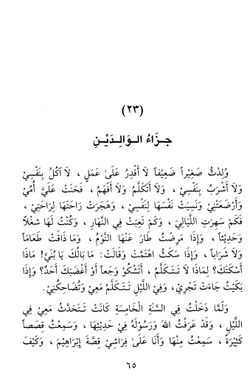 (٢٣)
جَزَاءُ الوَالِدَيْنِ
وُلِدْتُ صَغِيْراً ضَعِيْفاً لَا أَقْدِرُ عَلَىٰ عَمَلٍ، لَا آكُلُ بِنَفْسِيْ
وَلَا أَشْرَبُ بِنَفْسِيْ، وَلَا أَتَكَلَّمُ وَلَا أَفْهَمُ، فَحَنَتْ عَلَيَّ أُمِّيْ
وَأَرْضَعَتْنِيْ وَنَسِيَتْ نَفْسَهَا لِنَفْسِيْ، وَهَجَرَتْ رَاحَتَهَا لِرَاحَتِيْ،
فَكَمْ سَهِرَتِ اللَّيَالِيْ، وَكَمْ تَعِبَتْ فِي النَّهَارِ، وَكُنْتُ لَهَا شُغْلًا
وَحَدِيْثاً، وَإِذَا مَرِضْتُ طَارَ عَنْهَا النَّوْمُ، وَمَا ذَاقَتْ طَعَاماً
وَلَا شَرَاباً، وَإِذَا سَكَتُّ اهْتَمَّتْ وَقَالَتْ: مَا بَالُكَ يَا بُنَيَّ! مَاذَا
أَسْكَتَكَ؟ لِمَاذَا لَا تَتَكَلَّمُ، أَتَشْكُوْ وَجَعاً أَوْ أَغْضَبَكَ أَحَدٌ؟ وَإِذَا
بَكَيْتُ جَاءَتْ تَجْرِيْ، وَفِي اللَّيْلِ تَتَكَلَّمُ مَعِيْ وَتُضَاحِكُنِيْ.
وَلَمَّا دَخَلْتُ فِي السَّنَةِ الْخَامِسَةِ كَانَتْ تَتَحَدَّثُ مَعِيْ فِي
اللَّيْلِ، وَقَدْ عَرَفْتُ اللهَ وَرَسُوْلَهُ فِيْ حَدِيْثِهَا، وَسَمِعْتُ قِصَصاً
كَثِيْرَةً، سَمِعْتُ مِنْهَا وَأَنَا عَلَىٰ فِرَاشِيْ قِصَّةَ إِبْرَاهِيْمَ، وَكَيْفَ
٦٥